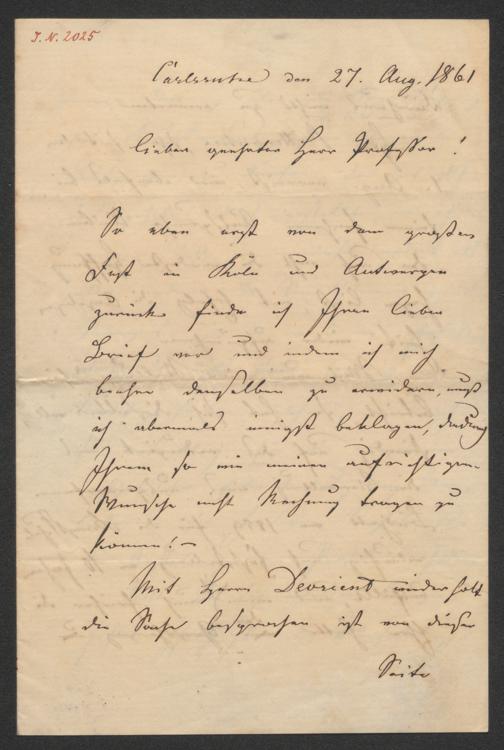 J. N. 2025
Carlsruhe den 27. Aug. 1861
Lieber geehrter Herr Professor!
So eben erst von dem großen
Fest in Köln und Antwerpen
zurück finde ich Ihren lieben
Brief vor und indem ich mich
beehre denselben zu erwidern, muß
ich abermals innigst beklagen,
Ihrem so wie meinen aufrichtigen
Wunsche nicht Rechnung tragen zu
können! –
Mit Herrn Devrient wiederholt
die Sache besprochen ist von dieser
Seite